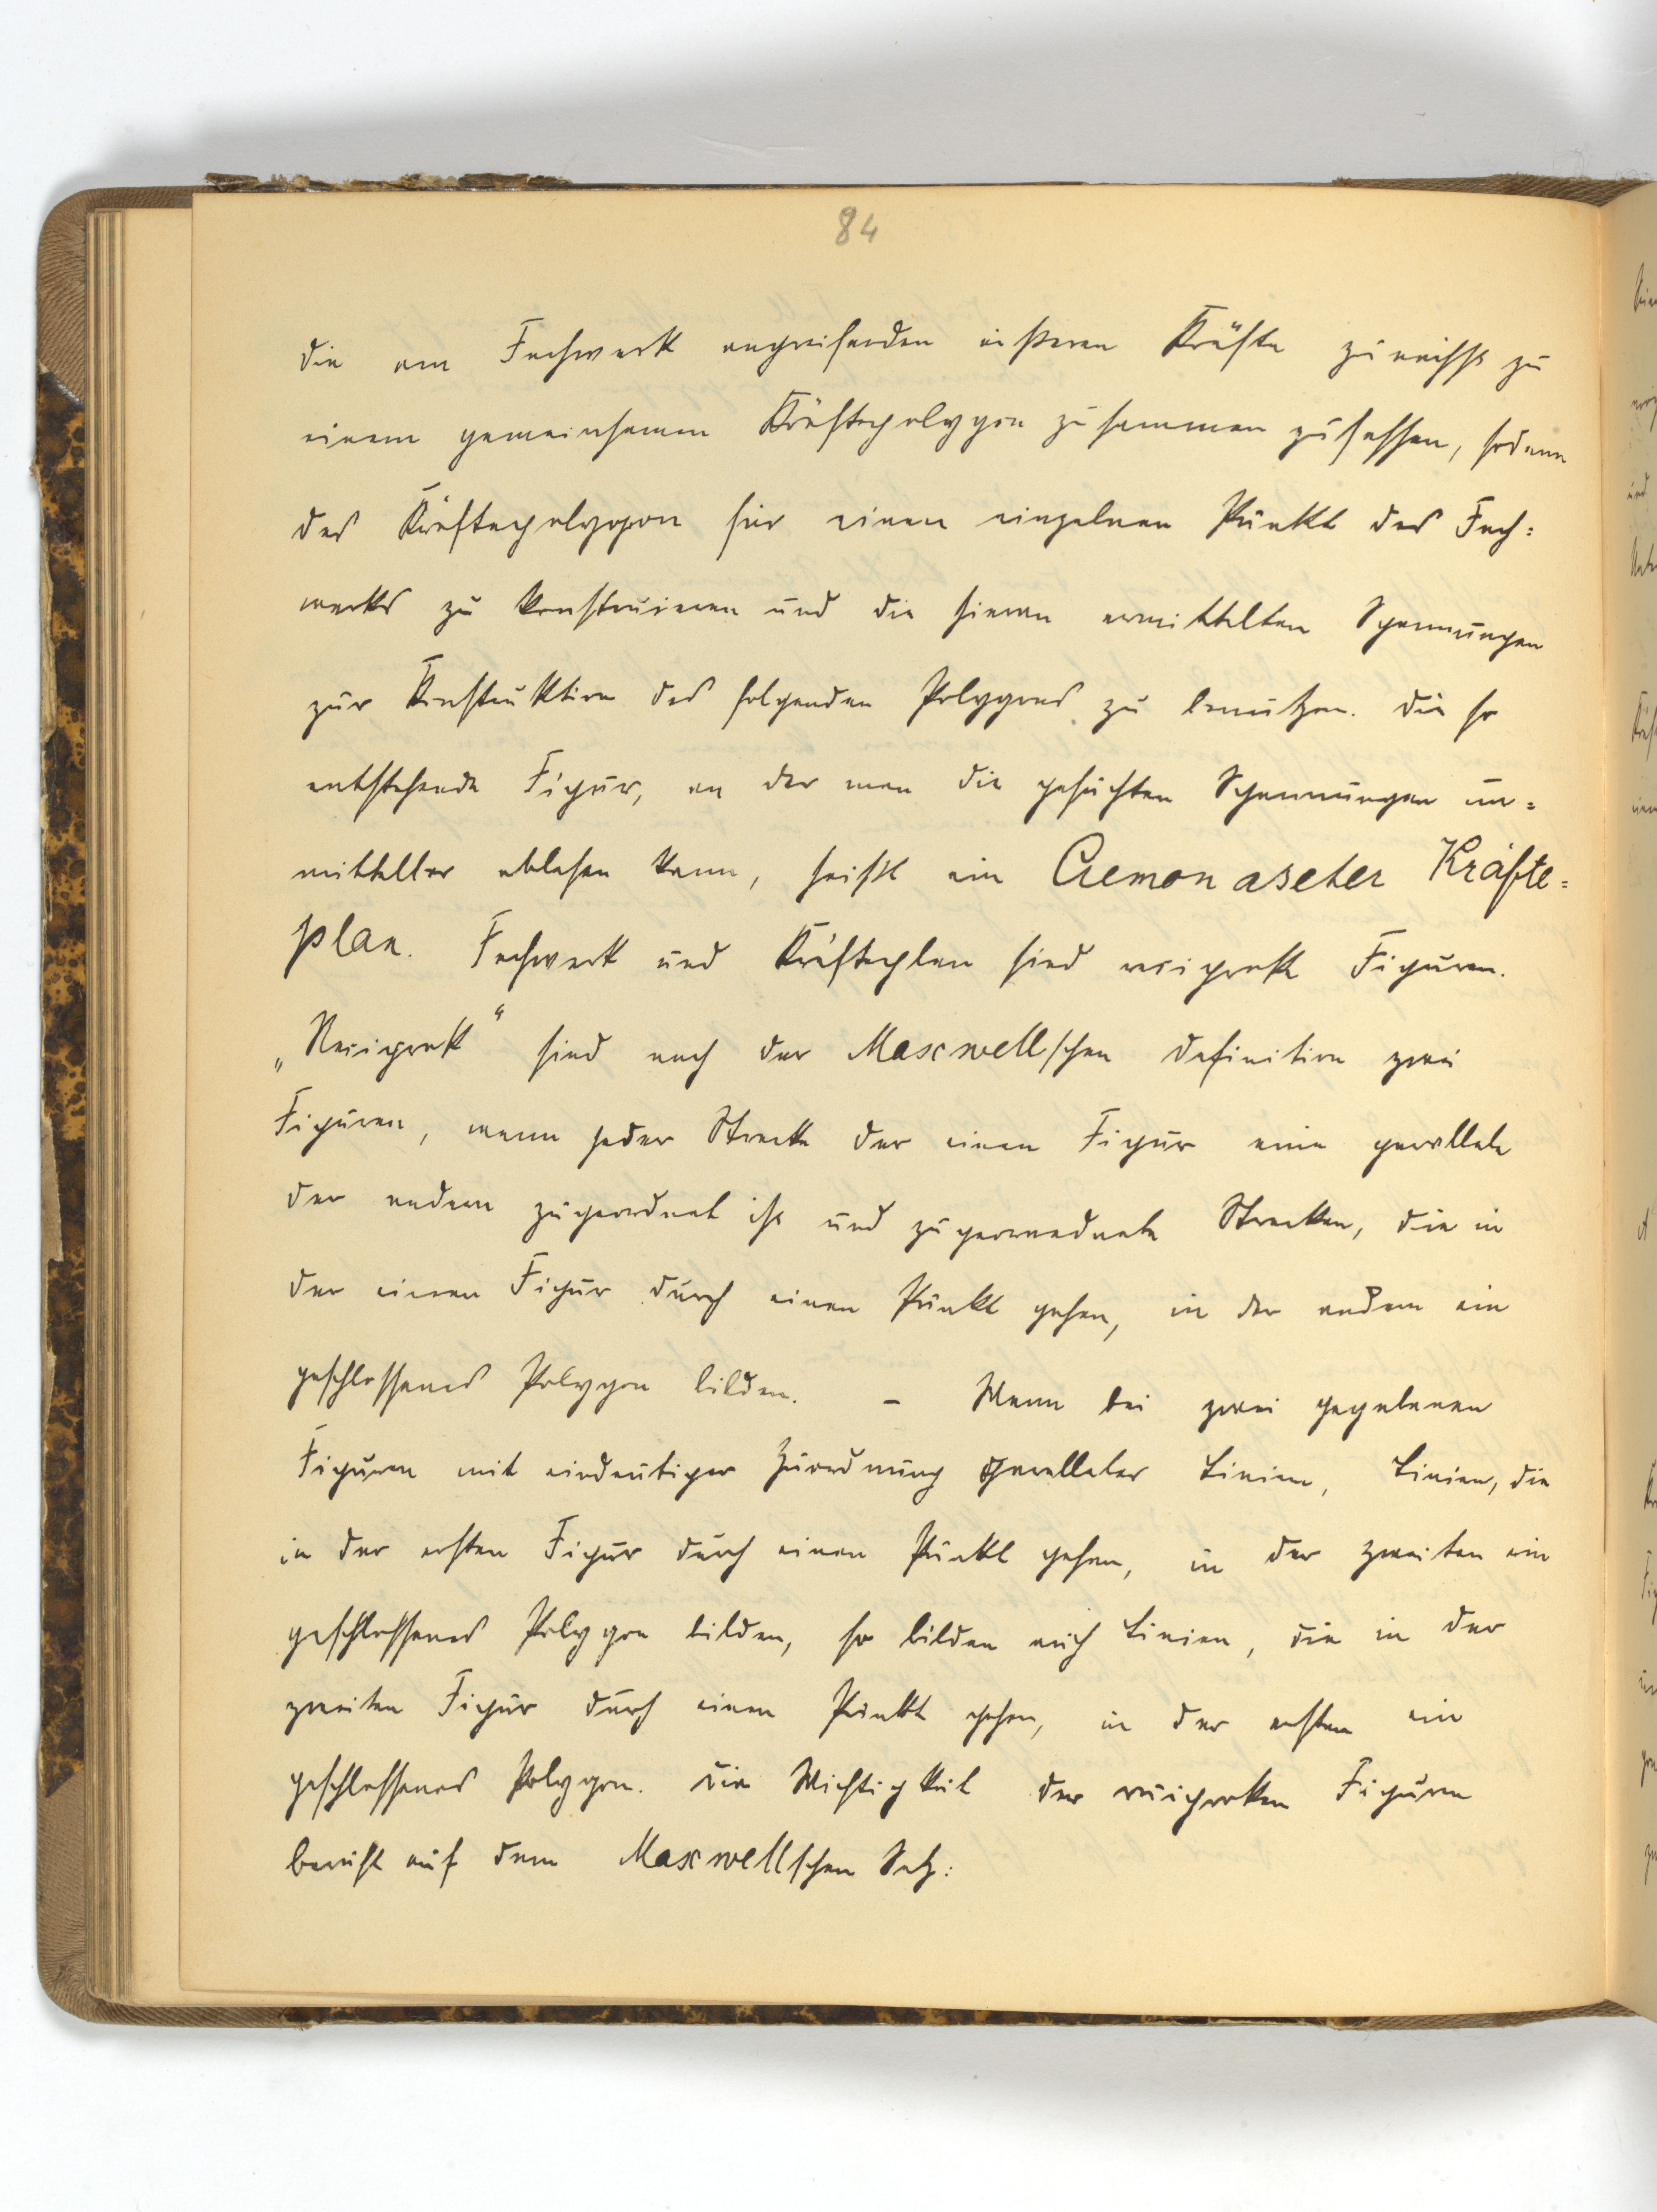 84
die am Fachwerk angreifenden äußeren Kräfte zunächst zu
einem gemeinsamen Kräftepolygon zusammen zufassen, sodann
das Kräftepolygon für einen einzelnen Punkt des Fach:
werks zu konstruieren und die hieran ermittelten Spannungen
zur Konstruktion des folgenden Polygons zu benutzen. Die so
entstehende Figur, an der man die gesuchten Spannungen un=
mittelbar ablesen kann, heißt ein Cremonascher Kräfte=
plan. Fachwerk und Kräfteplan sind reciproke Figuren.
„Reciprok“ sind nach der Maxwellschen Definition zwei
Figuren, wenn jeder Strecke der einen Figur eine parallele
der andern zugeordnet ist und zugeordnete Strecken, die in
der einen Figur durch einen Punkt gehen, in der andern ein
geschlossenes Polygon bilden. – Wenn bei zwei gegebenen
Figuren mit eindeutiger Zuordnung paralleler Linien, Linien, die
in der ersten Figur durch einen Punkt gehen, in der zweiten ein
geschlossenes Polygon bilden, so bilden auch Linien, die in der
zweiten Figur durch einen Punkt gehen, in der ersten ein
geschlossenes Polygon. Die Wichtigkeit der reciproken Figuren
beruht auf dem Maxwellschen Satz: